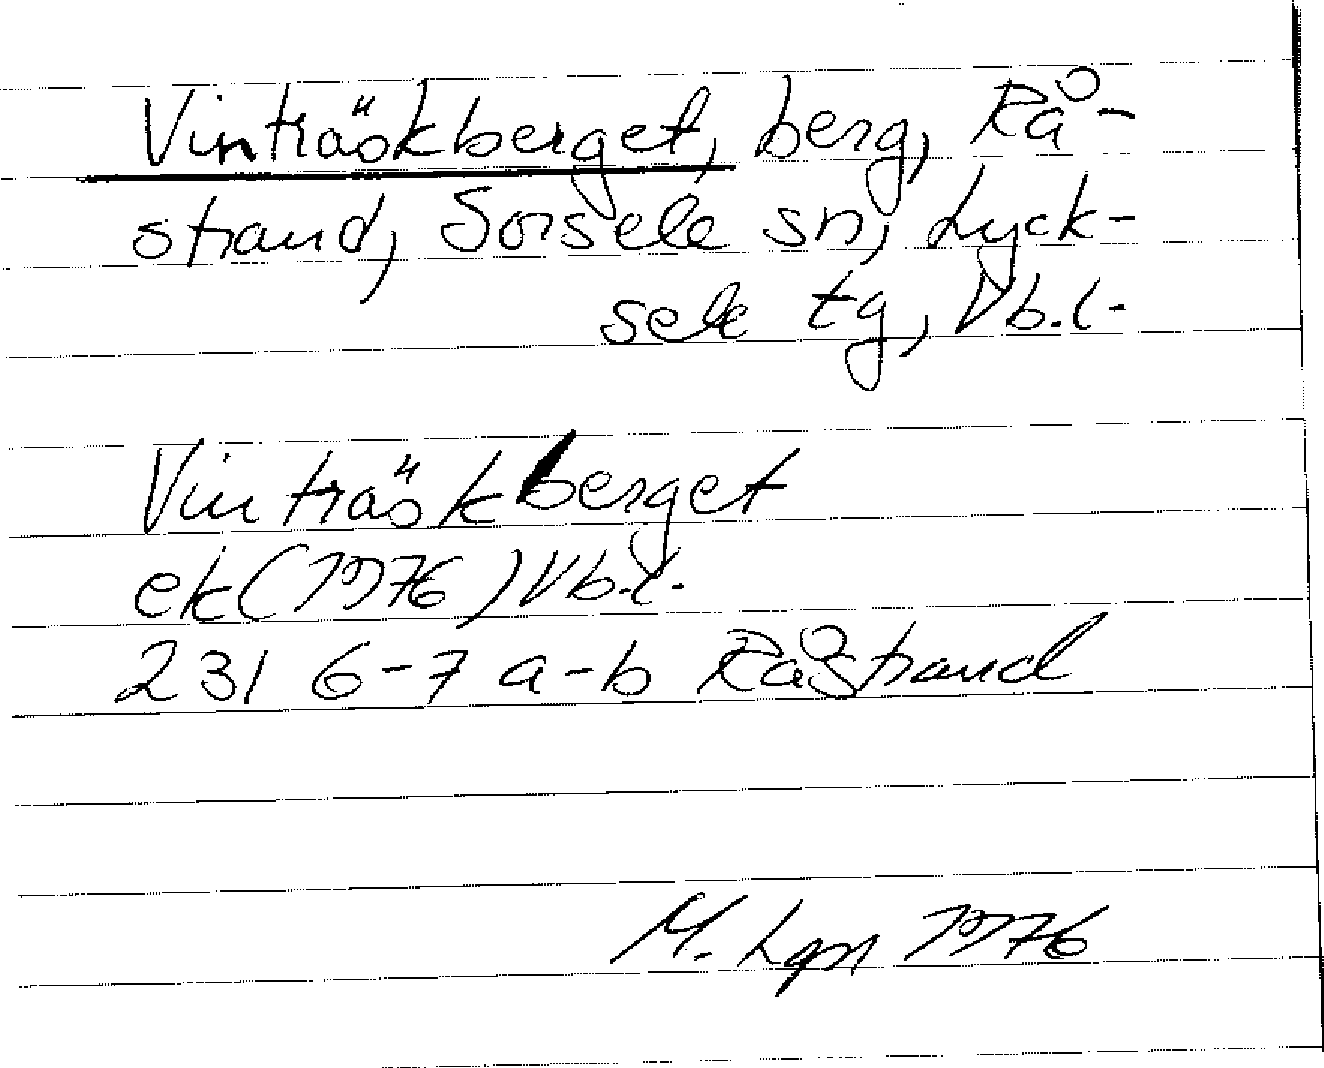 Vinträskberget, berg, Rå-
strand, Sorsele sn, Lyck-
sele tg, Vb.l.
Vinträskberget
ek (1976) Vb.l.
231 6-7 a-b Råstrand
M. Lgn 1976